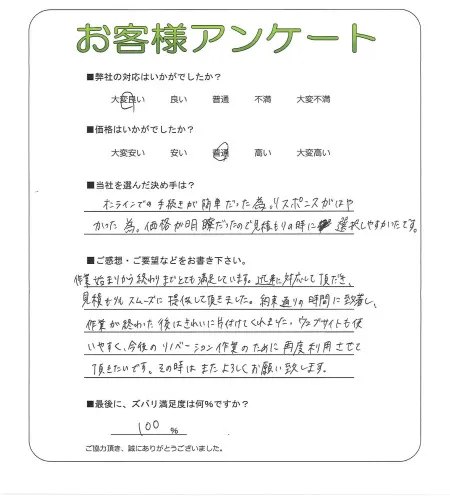 お客様アンケート
■弊社の対応はいかがでしたか？
大変良い 良い 普通 不満 大変不満
■価格はいかがでしたか？
大変安い 安い 普通 高い 大変高い
■当社を選んだ決め手は？
オンラインでの手続きが簡単だった為。リスポンスがはや
かった為。価格が明瞭だったので見積もりの時に選択しやすかったです。
■ご感想・ご要望などをお書き下さい。
作業始まりから終わりまでとても満足しています。迅速に対応して頂き、
見積もりもスムーズに提供して頂きました。約束通りの時間に到着し、
作業が終わった後はきれいに片付けてくれました。ウェブサイトも使
いやすく、今後のリノベーション作業のために再度利用させて
頂きたいです。その時はまたよろしくお願い致します。
■最後に、ズバリ満足度は何%ですか？
100 %
ご協力頂き、誠にありがとうございました。